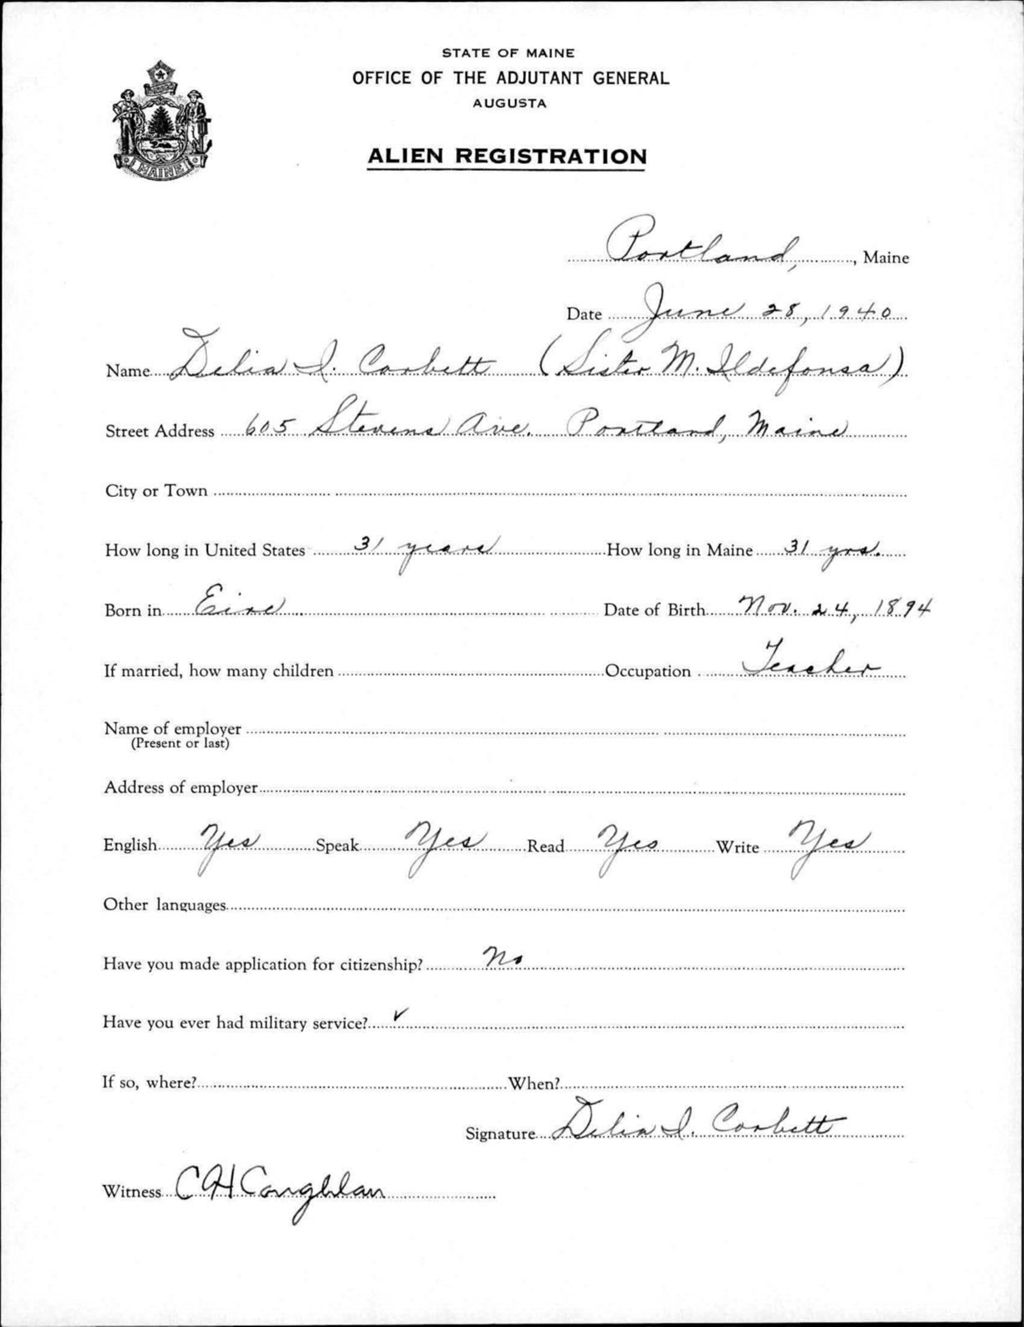 STATE OF MAINE
OFFICE OF THE ADJUTANT GENERAL
AUGUSTA
ALIEN REGISTRATION
MAINE
Portland, , Maine
Date June 28, 1940
Name Delia I. Corbett (Sister M. Ildefonsa)
Street Address 605 Stevens Ave. Portland, Maine
City or Town
How long in United States 31 years How long in Maine 31 yrs.
Born in Eire Date of Birth Nov. 24, 1894
If married, how many children Occupation Teacher
Name of employer
(Present or last)
Address of employer
English Yes Speak Yes Read Yes Write Yes
Other languages
Have you made application for citizenship? No
Have you ever had military service? ✓
If so, where? When?
Signature Delia I. Corbett
Witness C H Coughlan